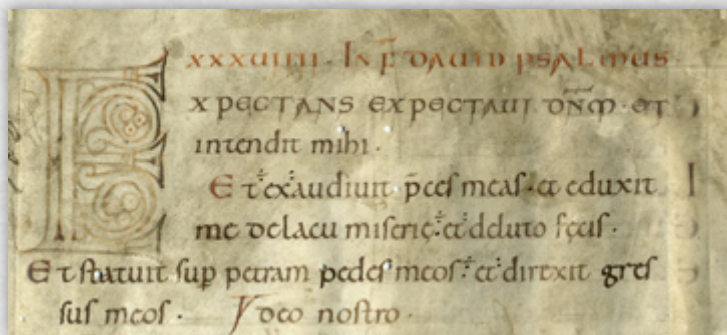 XXXVIIII · IN F̄ DAVID PSALMUS ·
EXPECTANS EXPECTAVI DN̄M · ET
intendit mihi ·
Et exaudiuit p̄ces meas · et eduxit
me delacu miserię · et deluto fęcis ·
Et statuit sup petram pedes meos · et direxit gres
sus meos ·
deo nostro ·